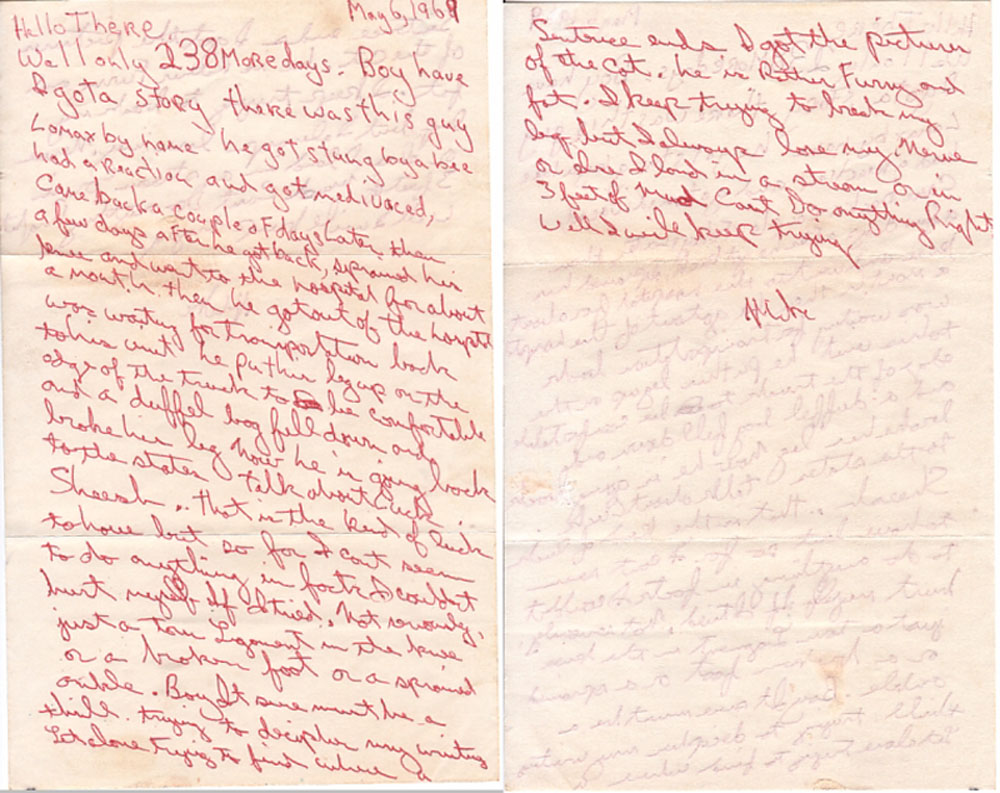 May 6, 1969
Hello There
Well only 238 More days. Boy have
I got a story there was this guy
Lomax by name he got stung by a bee
had a Reaction and got medivaced,
Came back a couple of days later then
a few days after he got back, sprained his
knee and went to the hospital for about
a month. then he got out of the hospital
was waiting for transportation back
to his unit he put his leg up on the
edge of the truck to be comfortable
and a duffel bag fell down and
broke his leg Now he is going back
to the states talk about luck
Sheesh .. That is the kind of luck
to have but so far I cant seem
to do anything in fact I couldnt
hurt myself if I tried, Not seriously,
just a torn ligament in the knee
or a broken foot or a sprained
ankle. Boy It sure must be a
thrill trying to decipher my writing
Let alone trying to find where a
Sentence ends I got the pictures
of the cat. he is Rather Furry and
fat. I keep trying to break my
leg but I always lose my Nerve
or else I land in a stream or in
3 feet of Mud Cant Do anything Right
Well I will keep trying